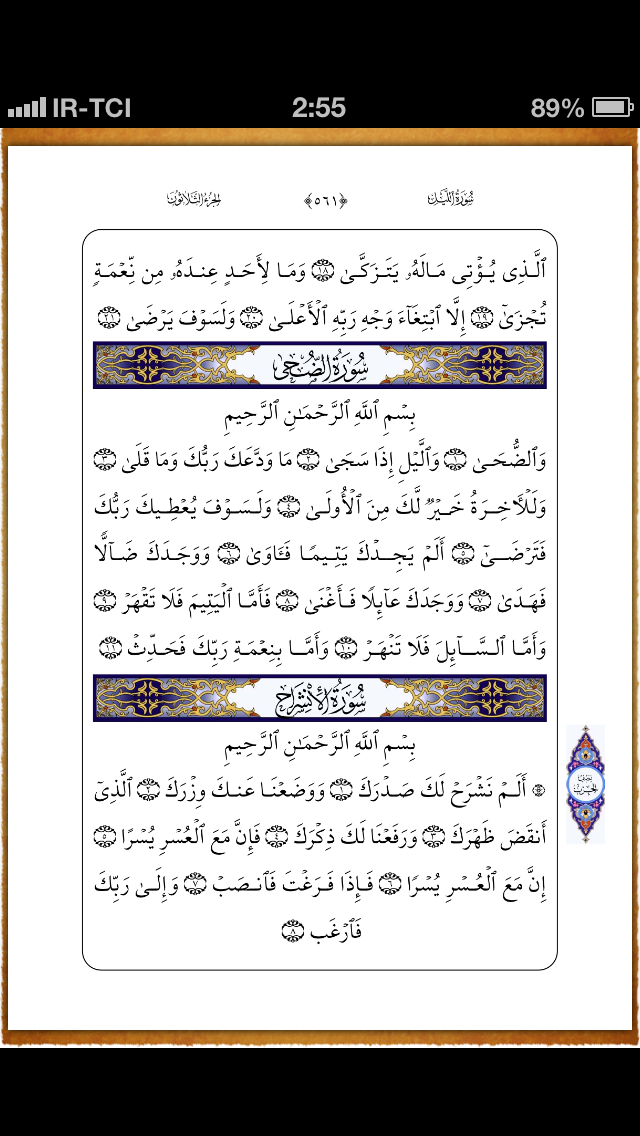 IR-TCI 2:55 89%
سُورَةُ اللَّيْل ﴿٥٦١﴾ الجُزءُ الثَّلاثُون
ٱلَّذِى يُؤْتِى مَالَهُۥ يَتَزَكَّىٰ ١٨ وَمَا لِأَحَدٍ عِندَهُۥ مِن نِّعْمَةٍ
تُجْزَىٰٓ ١٩ إِلَّا ٱبْتِغَآءَ وَجْهِ رَبِّهِ ٱلْأَعْلَىٰ ٢٠ وَلَسَوْفَ يَرْضَىٰ ٢١
سُورَةُ الضُّحَى
بِسْمِ ٱللَّهِ ٱلرَّحْمَـٰنِ ٱلرَّحِيمِ
وَٱلضُّحَىٰ ١ وَٱلَّيْلِ إِذَا سَجَىٰ ٢ مَا وَدَّعَكَ رَبُّكَ وَمَا قَلَىٰ ٣
وَلَلْـَٔاخِرَةُ خَيْرٌ لَّكَ مِنَ ٱلْأُولَىٰ ٤ وَلَسَوْفَ يُعْطِيكَ رَبُّكَ
فَتَرْضَىٰٓ ٥ أَلَمْ يَجِدْكَ يَتِيمًا فَـَٔاوَىٰ ٦ وَوَجَدَكَ ضَآلًّا
فَهَدَىٰ ٧ وَوَجَدَكَ عَآئِلًا فَأَغْنَىٰ ٨ فَأَمَّا ٱلْيَتِيمَ فَلَا تَقْهَرْ ٩
وَأَمَّا ٱلسَّآئِلَ فَلَا تَنْهَرْ ١٠ وَأَمَّا بِنِعْمَةِ رَبِّكَ فَحَدِّثْ ١١
سُورَةُ الإِنْشِرَاحِ
بِسْمِ ٱللَّهِ ٱلرَّحْمَـٰنِ ٱلرَّحِيمِ
۞ أَلَمْ نَشْرَحْ لَكَ صَدْرَكَ ١ وَوَضَعْنَا عَنكَ وِزْرَكَ ٢ ٱلَّذِىٓ
أَنقَضَ ظَهْرَكَ ٣ وَرَفَعْنَا لَكَ ذِكْرَكَ ٤ فَإِنَّ مَعَ ٱلْعُسْرِ يُسْرًا ٥
إِنَّ مَعَ ٱلْعُسْرِ يُسْرًا ٦ فَإِذَا فَرَغْتَ فَٱنصَبْ ٧ وَإِلَىٰ رَبِّكَ
فَٱرْغَب ٨
نصف
الحزب